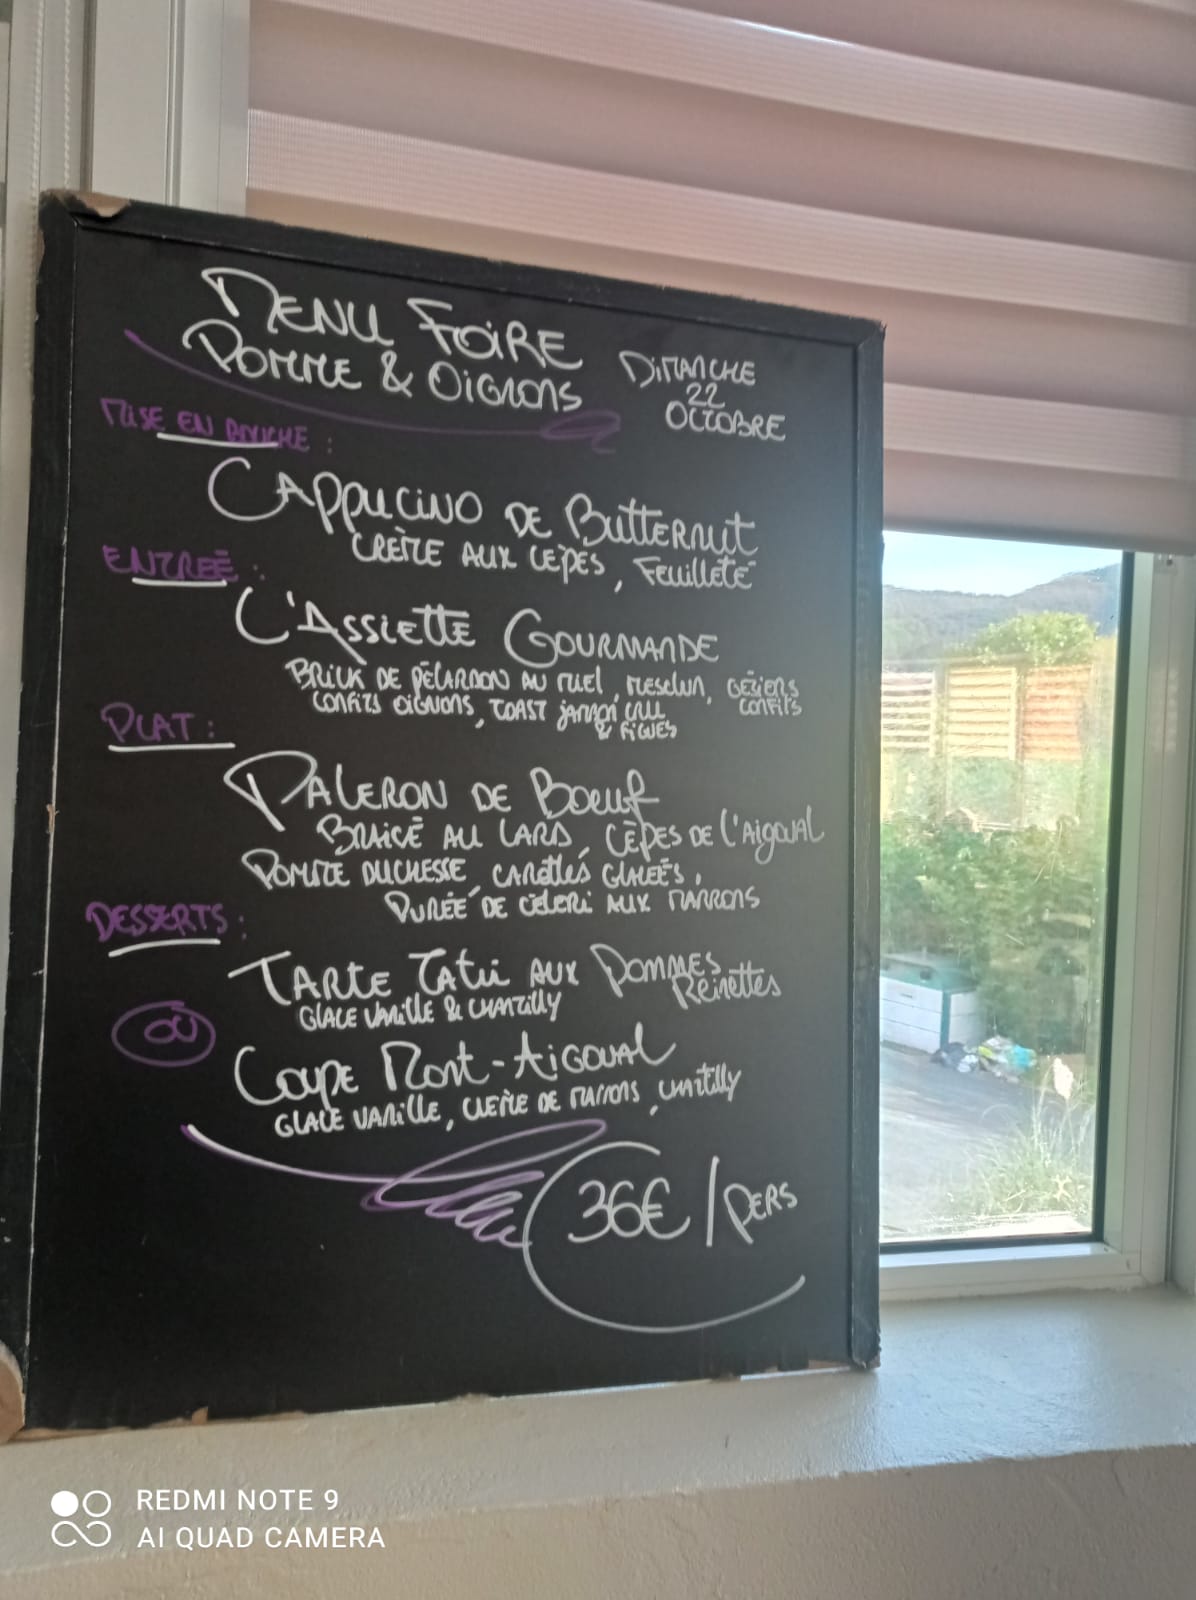 MENU FOIRE
POMME & OIGNONS
DIMANCHE
22
OCTOBRE
MISE EN BOUCHE :
CAPPUCINO DE BUTTERNUT
CRÈME AUX CÈPES, FEUILLETÉ
ENTREÉ :
L'ASSIETTE GOURMANDE
BRICK DE PÉLARDON AU MIEL, MESCLUN, GÉZIERS
CONFITS OIGNONS, TOAST JAMBON CRU CONFITS
& FIGUES
PLAT :
PALERON DE BOEUF
BRAICÉ AU LARD, CÈPES DE L'AIGOUAL
POMME DUCHESSE, CAROTTES GLACEÉS,
PURÉE DE CÉLERI AUX MARRONS
DESSERTS :
TARTE TATIN AUX POMMES
REINETTES
GLACE VANILLE & CHANTILLY
OU
COUPE MONT-AIGOUAL
GLACE VANILLE, CRÈME DE MARRONS, CHANTILLY
36€/PERS
REDMI NOTE 9
AI QUAD CAMERA